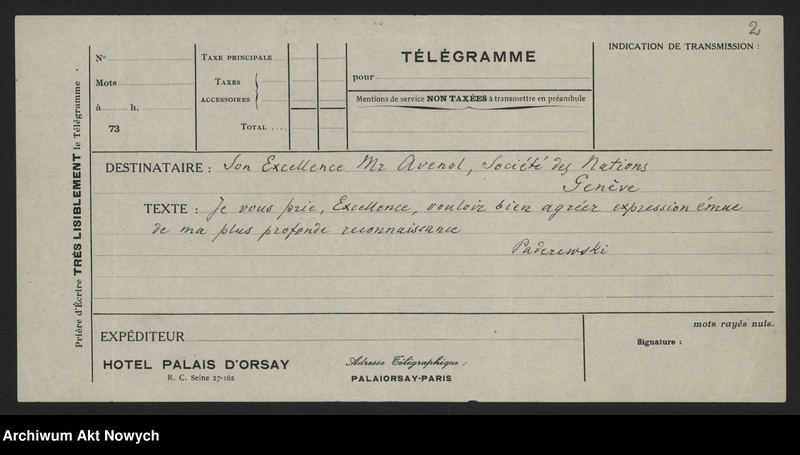 2
N°
Mots
à h.
73
TAXE PRINCIPALE
TAXES
ACCESSOIRES
TOTAL ....
TÉLÉGRAMME
pour
Mentions de service NON TAXÉES à transmettre en préambule
INDICATION DE TRANSMISSION :
Prière d'Écrire TRÈS LISIBLEMENT le Télégramme
DESTINATAIRE : Son Excellence Mr Avenol, Société des Nations
Genève
TEXTE : Je vous prie, Excellence, vouloir bien agréer expression émue
de ma plus profonde reconnaissance
Paderewski
EXPÉDITEUR
mots rayés nuls.
Signature :
HOTEL PALAIS D'ORSAY
R. C. Seine 27-162
Adresse Télégraphique :
PALAIORSAY-PARIS
Archiwum Akt Nowych